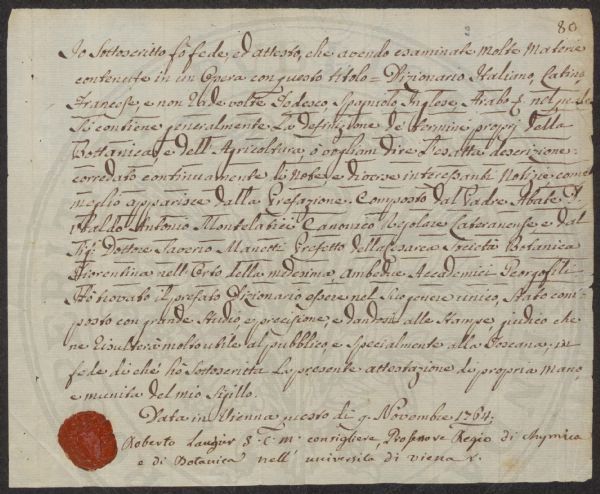 80
Io Sottoscritto fò fede, ed attesto, che avendo esaminate molte Materie
contenute in un Opera con questo titolo = Dizionario Italiano, Latino
Francese, e non Rade volte Tedesco Spagnolo Inglese Arabo &. nel quale
Si contiene generalmente La definizione de Termini proprj della
Bottanica, e dell' Agricoltura, ò vogliam dire L'esatta descrizione
corredato continuamente di Note e diverse interessanti Notizie come
meglio apparisce dalla Prefazione. Composto dal Padre Abate D.
Ubaldo Antonio Montelatici Canonico Regolare Lateranense e dal
Sig. Dottore Saverio Manetti Prefetto della Cesarea Società Botanica
Fiorentina nell' Orto della medesima, Ambedue Accademici Georgofili
Hò trovato il prefato Dizionario essere nel Suo genere unico, Stato com=
posto con grande Studio, e precisione, e dandosi alle Stampe, giudico che
ne Risulterà molto utile al pubblico, e Specialmente alla Toscana; in
fede di che hò Sottoscritta La presente attestazione di propria Mano,
e munita del mio Sigillo.
Data in Vienna questo dì 9 Novembre 1764;
Roberto Laugier S. C. M. consigliere, Professore Regio di Chymica
e di Botanica nell' università di viena